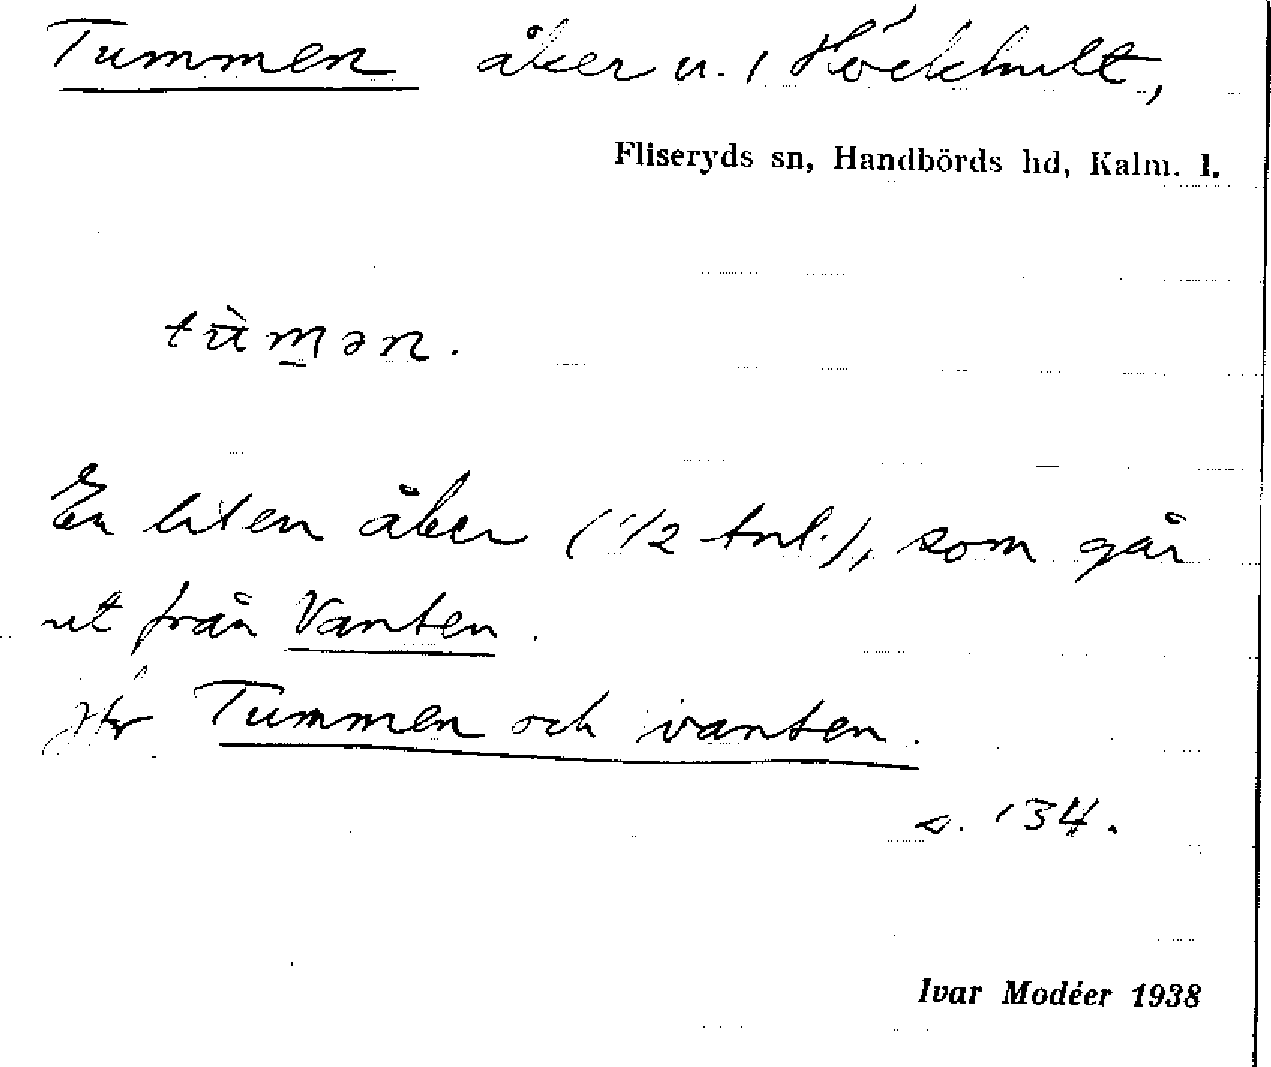 Tummen åker u. 1 Höckhult,
Fliseryds sn, Handbörds hd, Kalm. l.
tùmən.
En liten åker (1/2 tnl.), som går
ut från Vanten.
Jfr Tummen och vanten.
s. 134.
Ivar Modéer 1938